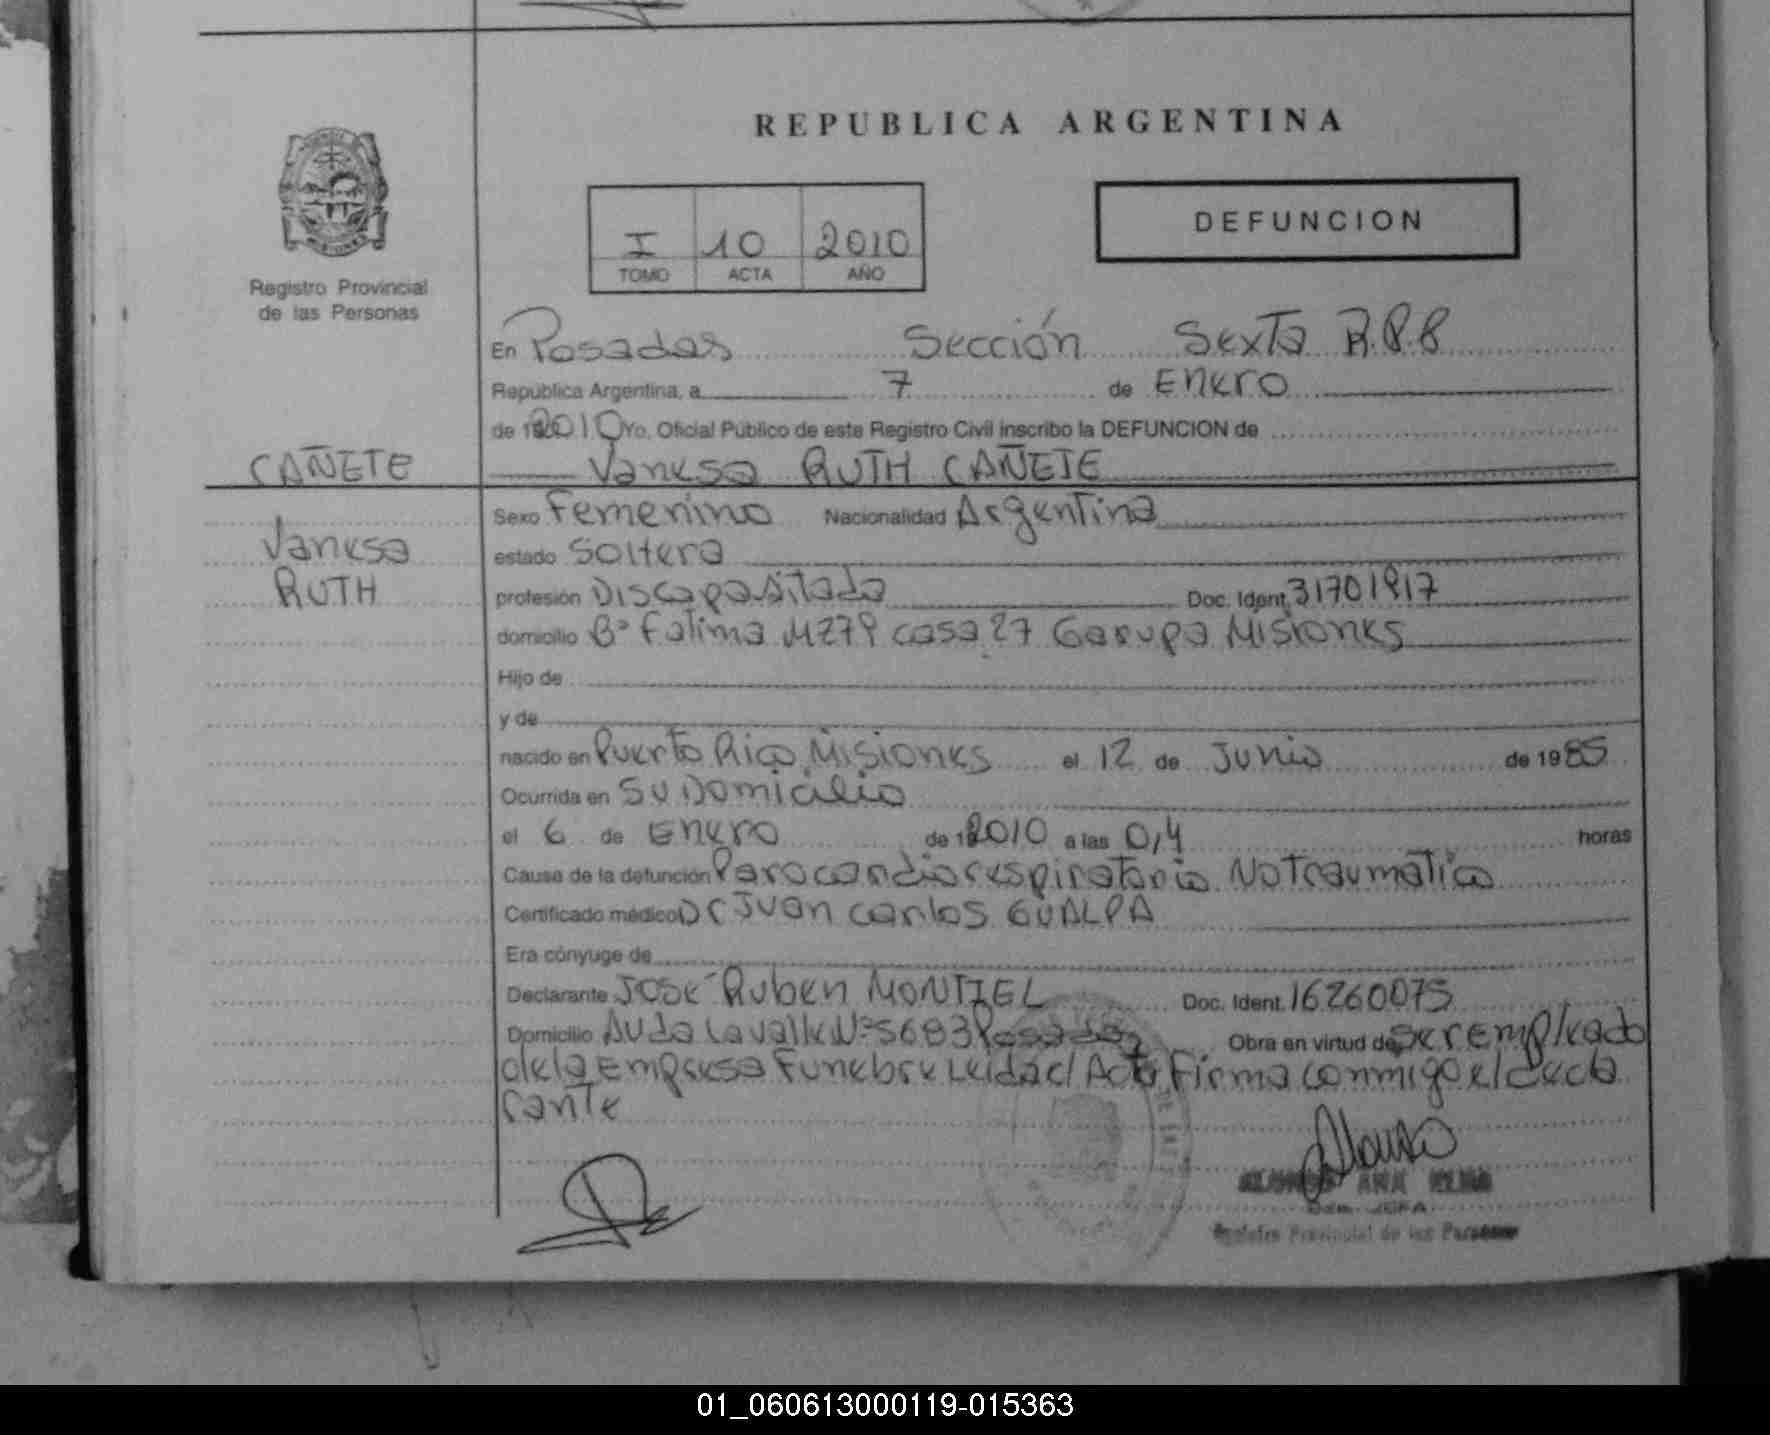 REPUBLICA ARGENTINA
I 10 2010
TOMO ACTA AÑO
DEFUNCION
Registro Provincial
de las Personas
En Posadas Sección Sexta R.P.P
República Argentina, a 7 de Enero
de 2010 Yo, Oficial Público de este Registro Civil inscribo la DEFUNCION de
CAÑETE
Vanesa RUTH CAÑETE
Vanesa
RUTH
Sexo Femenino Nacionalidad Argentina
estado Soltera
profesión Discapasitada Doc. Ident. 31701917
domicilio Bº Fatima MZ79 casa 27 Garupa Misiones
Hijo de
y de
nacido en Puerto Rico Misiones el 12 de Junio de 1985
Ocurrida en Su Domicilio
el 6 de Enero de 2010 a las 0,4 horas
Causa de la defunción Paro cardiorespiratorio No Traumatico
Certificado médico Dr Juan Carlos GUALPA
Era cónyuge de
Declarante José Ruben MONTIEL Doc. Ident. 16260075
Domicilio Avda Lavalle Nº 5683 Posadas Obra en virtud de ser empleado
de la Empresa Funebre Leida el Acta Firma conmigo el decla
rante
ANA
JEFA
Registro Provincial de las Personas
01_060613000119-015363